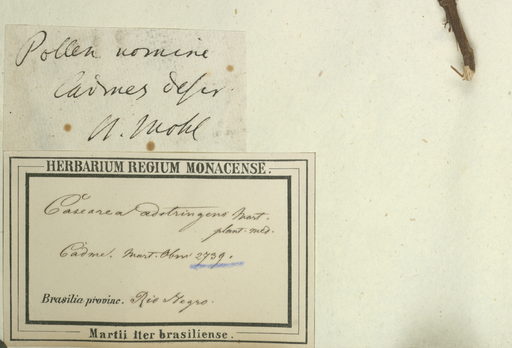 Pollen nomine
Cadmes descr.
H. Mohl
HERBARIUM REGIUM MONACENSE.
Casearea adstringens Mart.
plant. med.
Cadme. Mart. Obs. 2739.
Brasilia provinc. Rio Negro.
Martii Iter brasiliense.